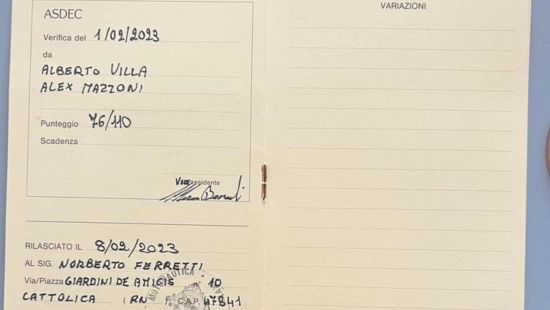 ASDEC
Verifica del 1/02/2023
da
ALBERTO VILLA
ALEX MAZZONI
Punteggio 76/110
Scadenza
Vice Presidente
RILASCIATO IL 8/02/2023
AL SIG. NORBERTO FERRETTI
Via/Piazza GIARDINI DE AMICIS 10
CATTOLICA (RN) C.A.P. 47841
MOTONAUTICA
VARIAZIONI